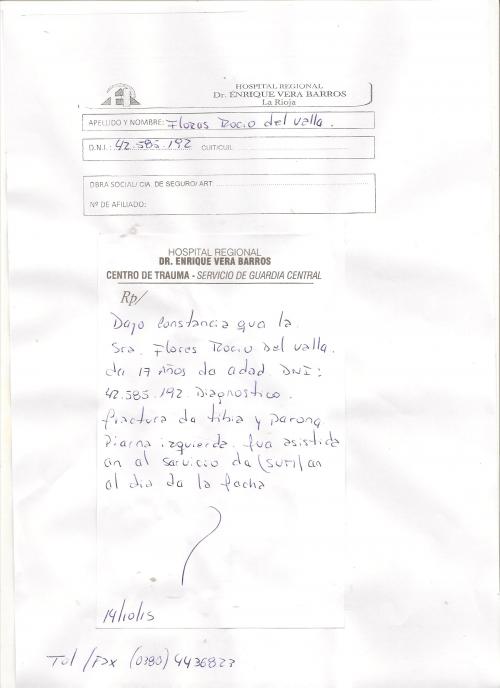 HOSPITAL REGIONAL
Dr. ENRIQUE VERA BARROS
La Rioja
APELLIDO Y NOMBRE: Flores Rocio del valle.
D.N.I.: 42.585.192 CUIT/CUIL:
OBRA SOCIAL/ CIA. DE SEGURO/ ART:
Nº DE AFILIADO:
HOSPITAL REGIONAL
DR. ENRIQUE VERA BARROS
CENTRO DE TRAUMA - SERVICIO DE GUARDIA CENTRAL
Rp/
Dejo constancia que la
Sra. Flores Rocio Del valle.
de 17 Años de edad. DNI:
42.585.192. Diagnostico.
fractura de tibia y Perone.
Pierna izquierda. fue asistida
en el servicio de (SUM) en
el dia de la fecha
14/10/15
Tel /Fax (0380) 4436823